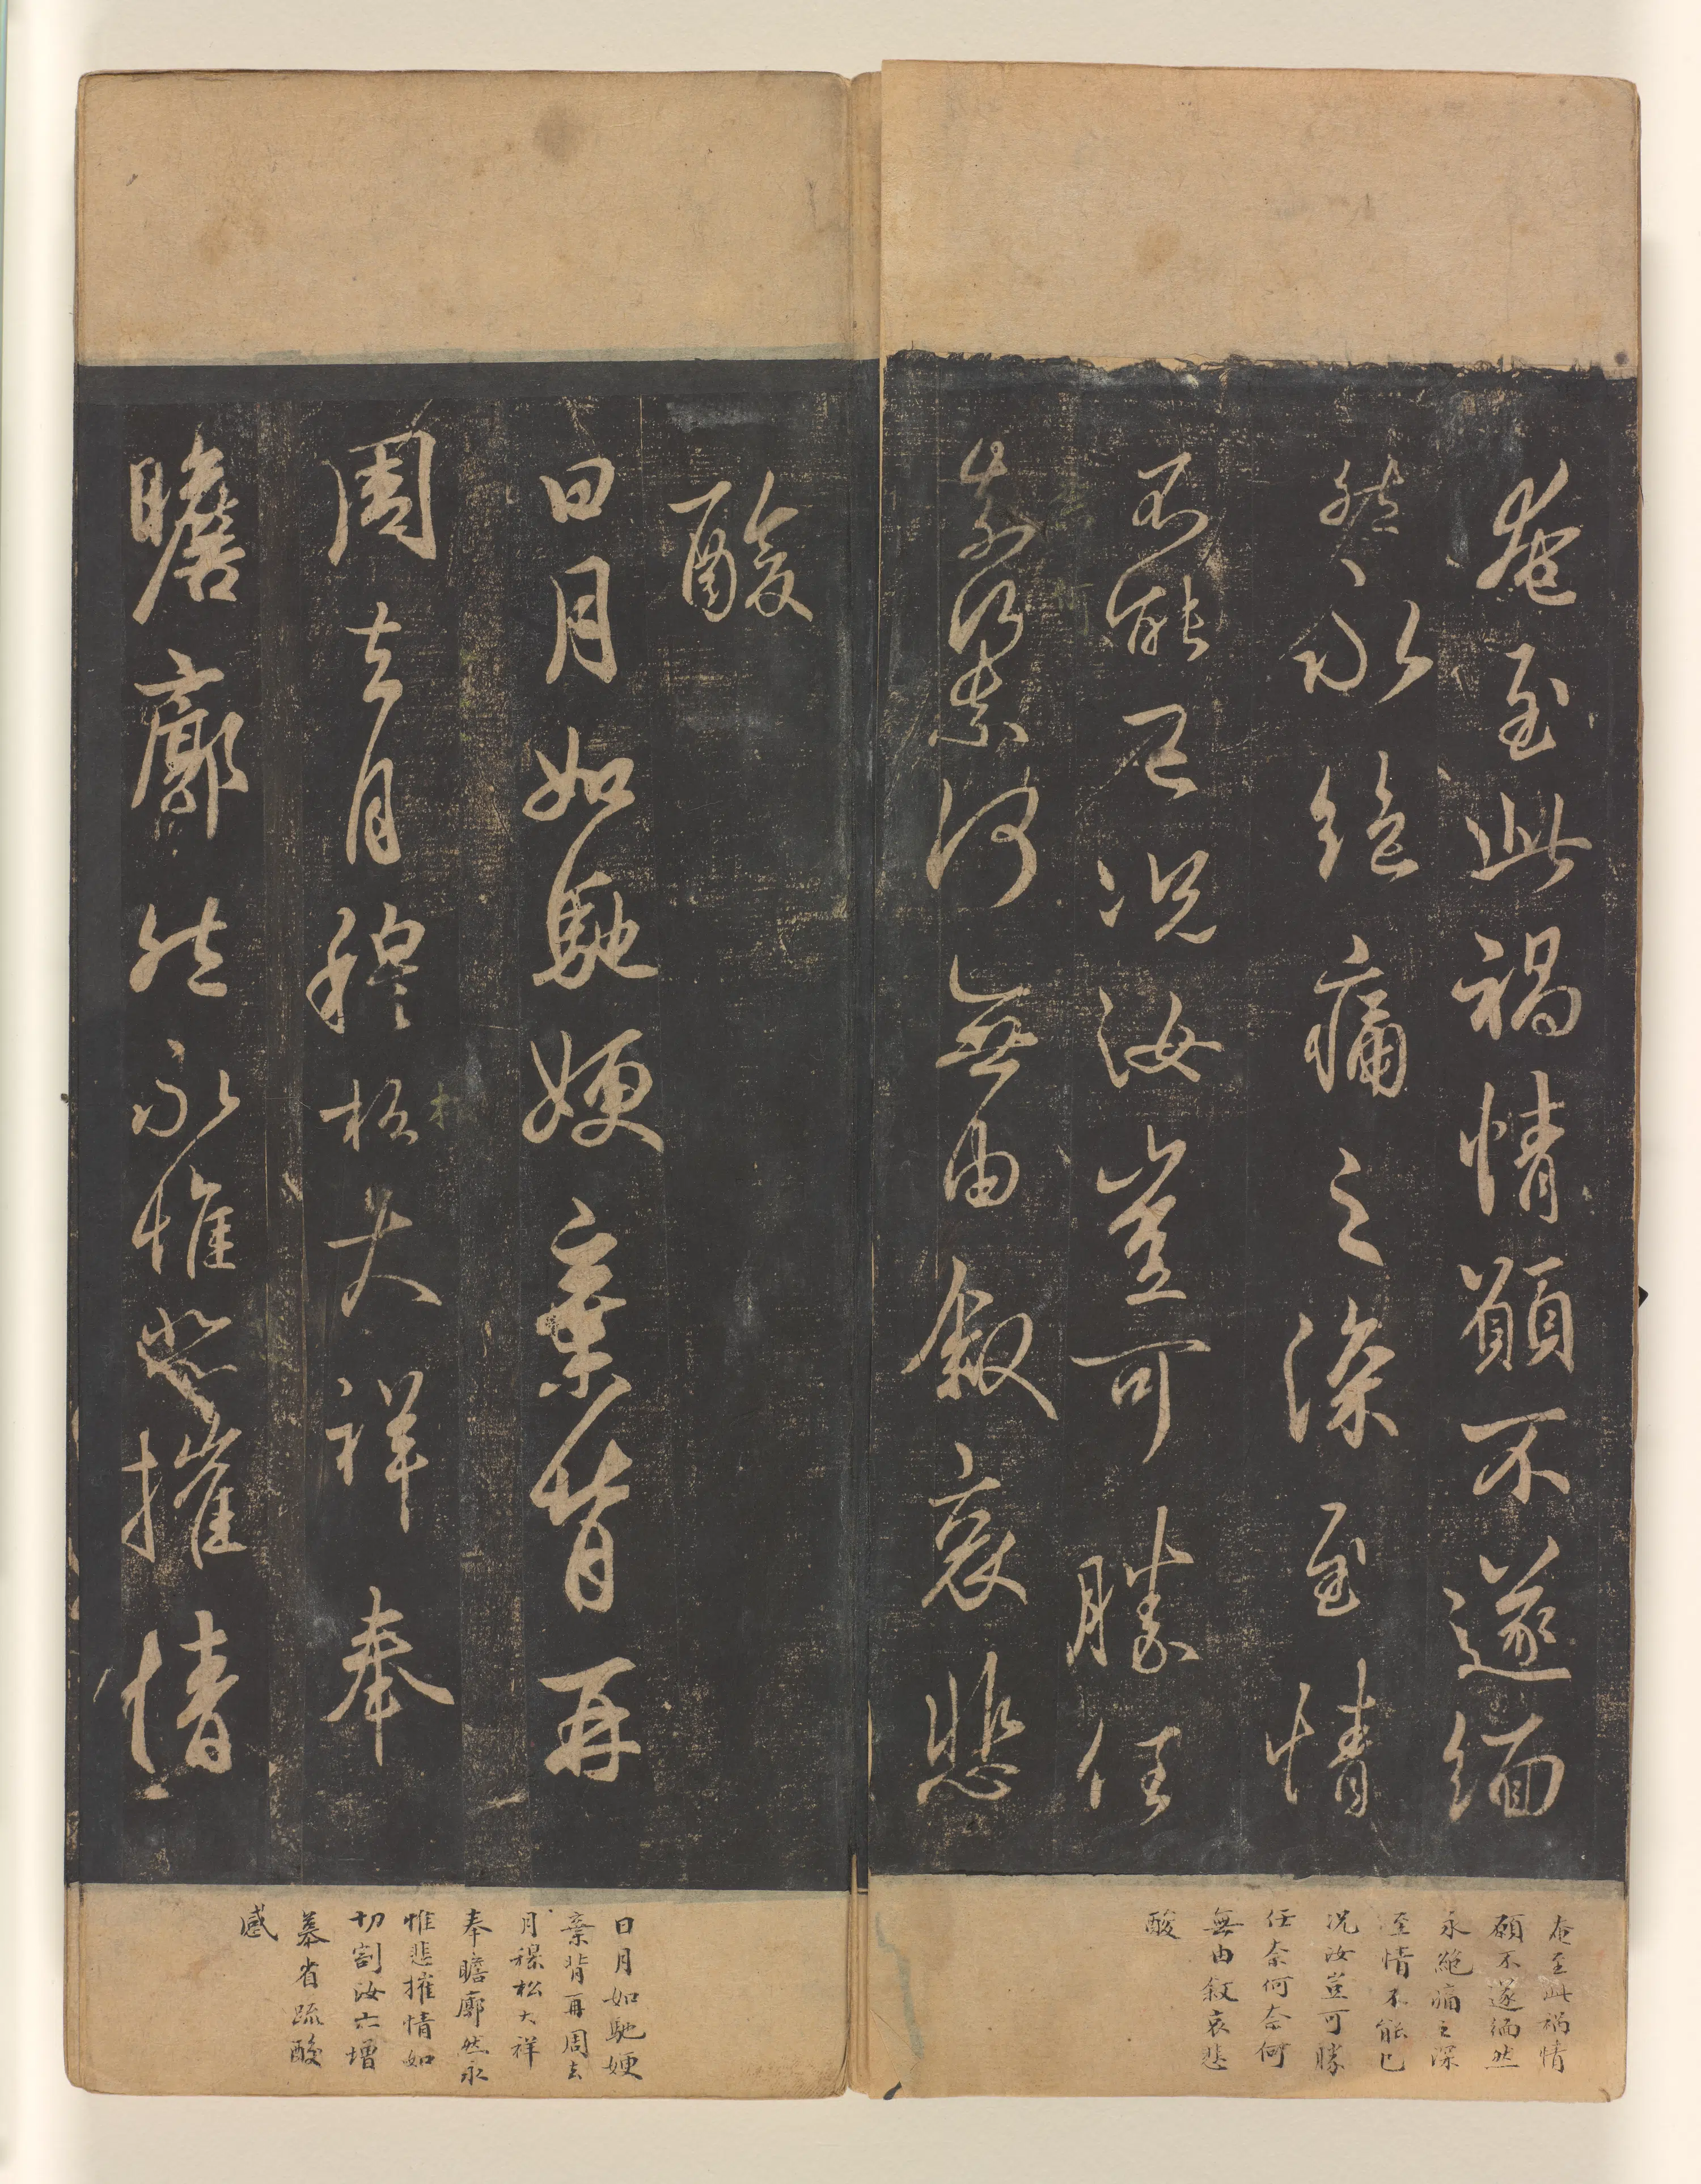 奄至此禍情願不遂緬
然永絕痛之深至情
不能已況汝豈可勝任
柰何柰何無由敘哀悲
酸
日月如馳嫂棄背再
周去月穆松大祥奉
瞻廓然永惟悲摧情
奄至此禍情
願不遂緬然
永絕痛之深
至情不能已
況汝豈可勝
任奈何奈何
無由敘哀悲
酸
日月如馳嫂
棄背再周去
月穆松大祥
奉瞻廓然永
惟悲摧情如
切割汝亦增
慕省疏酸
感